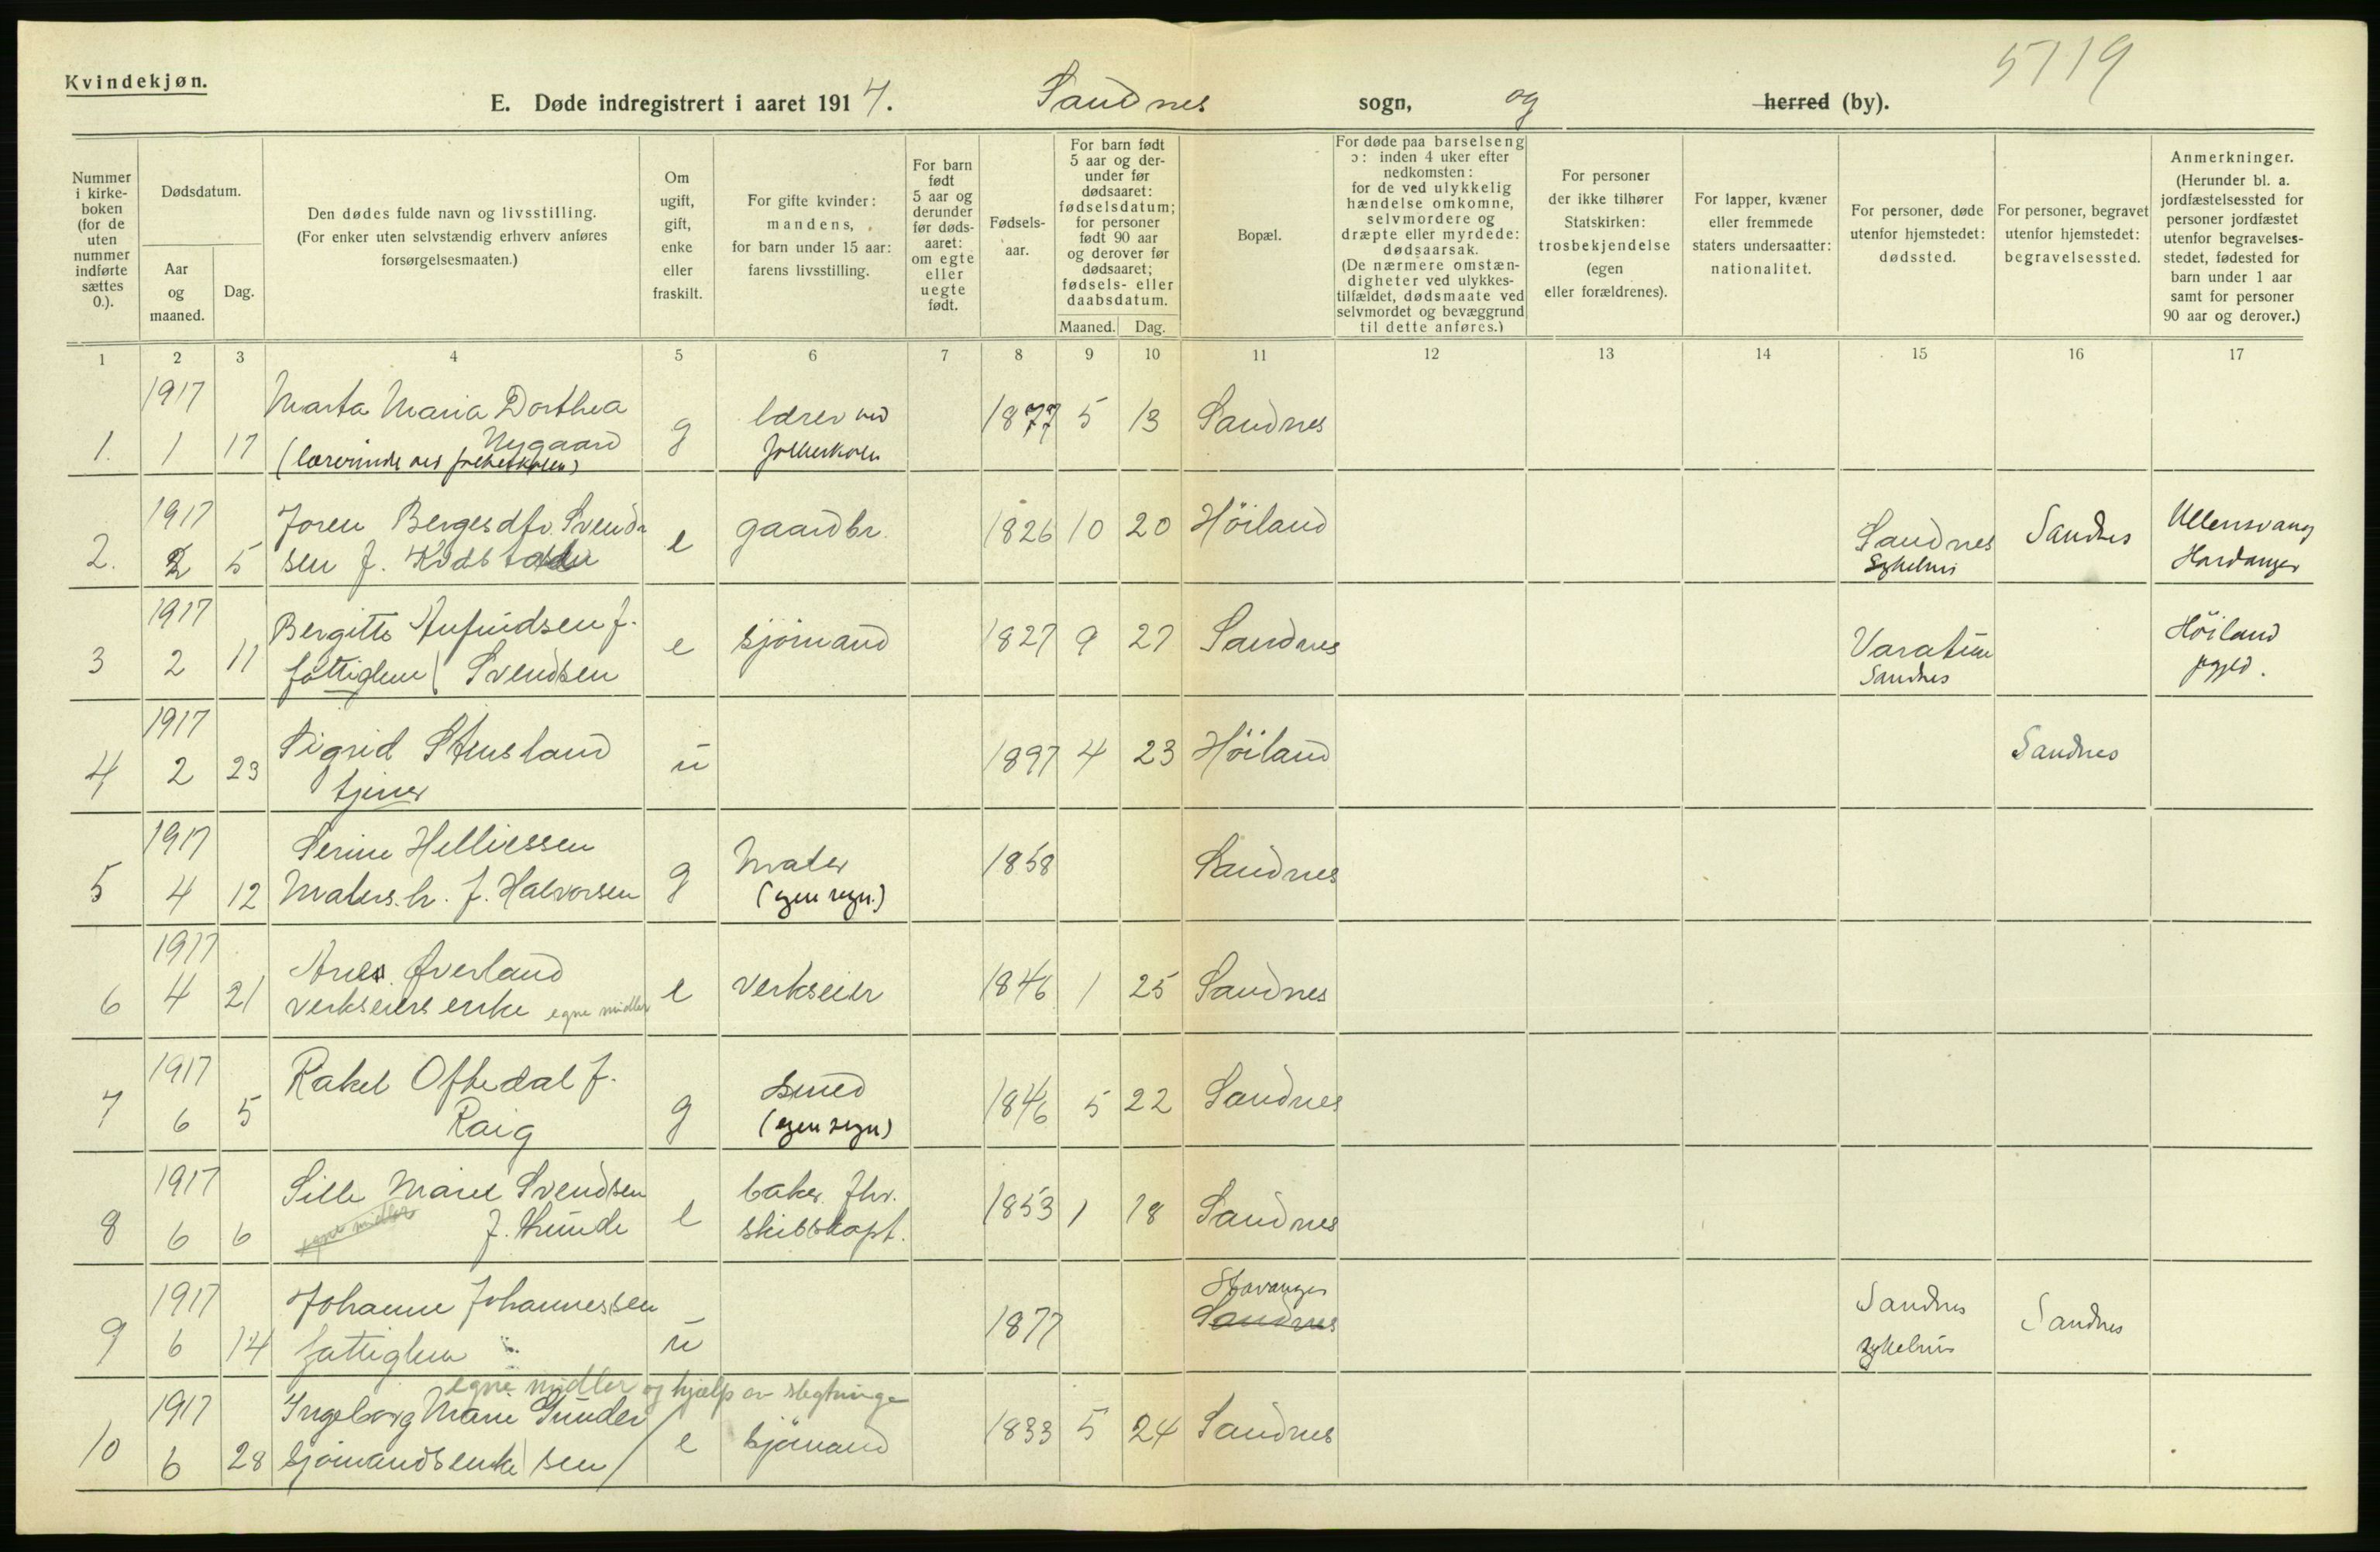 Kvindekjøn.
5719
E. Døde indregistrert i aaret 1917. Sandnes sogn, og herred (by).
Nummer i kirke- boken (for de uten nummer indførte sættes 0.).
Dødsdatum.
Aar og maaned.
Dag.
Den dødes fulde navn og livsstilling.
(For enker uten selvstændig erhverv anføres forsørgelsesmaaten.)
Om ugift, gift, enke eller fraskilt.
For gifte kvinder: mandens, for barn under 15 aar: farens livsstilling.
For barn født 5 aar og derunder før døds- aaret: om egte eller uegte født.
Fødsels- aar.
For barn født 5 aar og der- under før dødsaaret: fødselsdatum; for personer født 90 aar og derover før dødsaaret; fødsels- eller daabsdatum.
Maaned. Dag.
Bopæl.
For døde paa barselseng ɔ: inden 4 uker efter nedkomsten: for de ved ulykkelig hændelse omkomne, selvmordere og dræpte eller myrdede: dødsaarsak. (De nærmere omstæn- digheter ved ulykkes- tilfældet, dødsmaate ved selvmordet og bevæggrund til dette anføres.)
For personer der ikke tilhører Statskirken: trosbekjendelse (egen eller forældrenes).
For lapper, kvæner eller fremmede staters undersaatter: nationalitet.
For personer, døde utenfor hjemstedet: dødssted.
For personer, begravet utenfor hjemstedet: begravelsessted.
Anmerkninger. (Herunder bl. a. jordfæstelsessted for personer jordfæstet utenfor begravelses- stedet, fødested for barn under 1 aar samt for personer 90 aar og derover.)
1 2 3 4 5 6 7 8 9 10 11 12 13 14 15 16 17
1917 Marta Maria Dorthea lærer ved
1. 1 17 Nygaard g folkeskolen 1877 5 13 Sandnes
(lærerinde ved folkeskolen)
1917 Joren Bergesdtr. Svend- Ullensvang
2. 2 5 sen f. e gaardbr. 1826 10 20 Høiland Sandnes Sandnes Hardanger
Sykehus
1917 Bergitte Anfindsen f. Høiland
3 2 11 fattiglem Svendsen e sjømand 1827 9 27 Sandnes Varatun pgjld.
Sandnes
1917 Sigrid Stensland
4 2 23 tjener u 1897 4 23 Høiland Sandnes
1917 Serine Helliessen Maler
5 4 12 Malers. h. f. Halvorsen g (egen regn.) 1858 Sandnes
1917 Ane Øverland
6 4 21 verkseiers enke egne midler e verkseier 1846 1 25 Sandnes
1917 Rakel Oftedal f. smed
7 6 5 Raig g (egen regn) 1846 5 22 Sandnes
1917 Sille Marie Svendsen baker. fhv.
8 6 6 egne midler f. Lunde e skibskapt. 1853 1 18 Sandnes
1917 Johanne Johannessen Stavanger Sandnes
9 6 14 fattiglem u 1877 Sandnes sykehus Sandnes
egne midler og hjælp av slegtninge
1917 Ingeborg Marie Gunder
10 6 28 sjømands enke sen e sjømand 1833 5 24 Sandnes